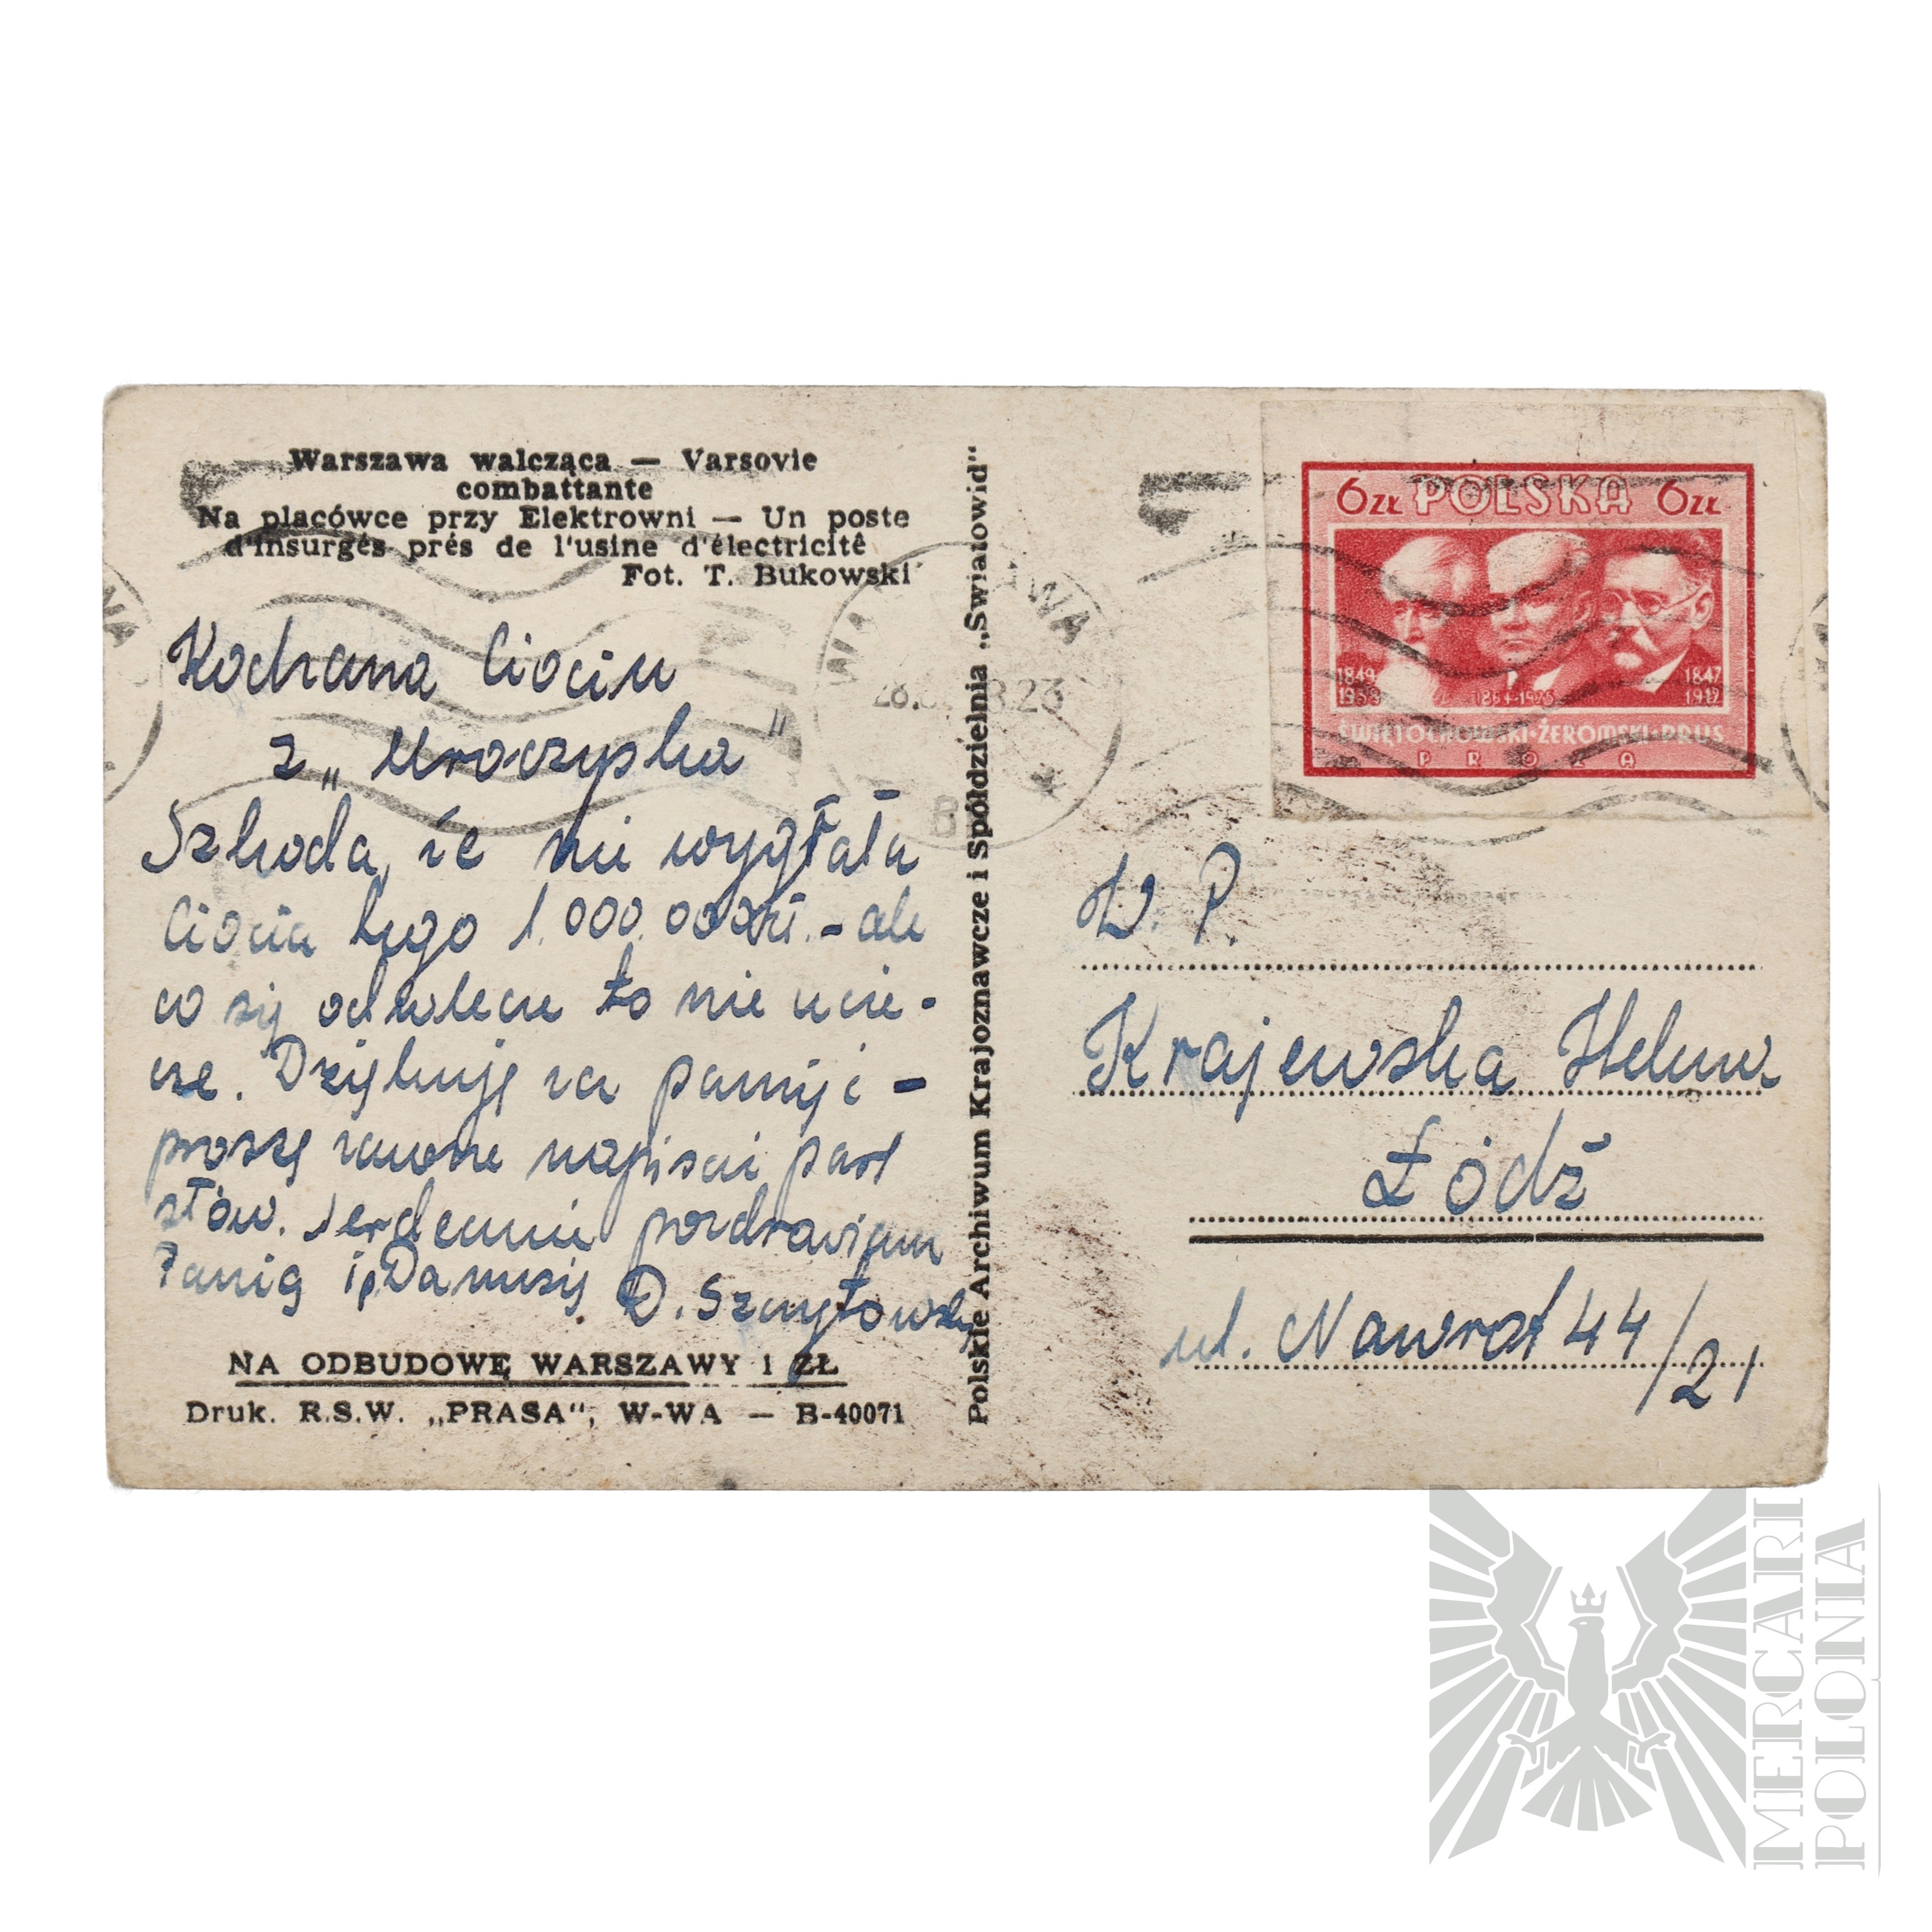 Warszawa walcząca — Varsovie
combattante
Na placówce przy Elektrowni — Un poste
d'insurgés prés de l'usine d'électricitê
Fot. T. Bukowski
Kochana Ciociu
z „Uroczyska"
Szkoda, że nie wygrała
Ciocia tego 1.000.000 zł. - ale
co się odwlecze to nie ucie-
cze. Dziękuję za pamięć -
proszę zawsze napisać parę
słów. Serdecznie pozdrawiam
Panią i p. Danusię D.
NA ODBUDOWĘ WARSZAWY 1 ZŁ
Druk. R.S.W. „PRASA", W-WA — B-40071
Polskie Archiwum Krajoznawcze i Spółdzielnia „Światowid"
6 ZŁ POLSKA 6 ZŁ
1849 1847
1938 1864-1925 1912
ŚWIĘTOCHOWSKI·ŻEROMSKI·PRUS
PROZA
W. P.
Krajewska Helena
Łódź
ul. Nawrot 44/21
MERCARI
POLONIA